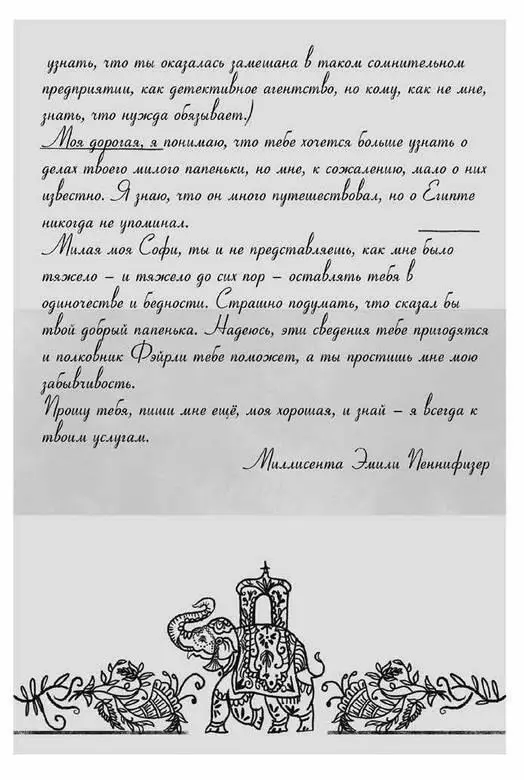 узнать, что ты оказалась замешана в таком сомнительном
предприятии, как детективное агентство, но кому, как не мне,
знать, что нужда обязывает.)
Моя дорогая, я понимаю, что тебе хочется больше узнать о
делах твоего милого папеньки, но мне, к сожалению, мало о них
известно. Я знаю, что он много путешествовал, но о Египте
никогда не упоминал.
Милая моя Софи, ты и не представляешь, как мне было
тяжело – и тяжело до сих пор – оставлять тебя в
одиночестве и бедности. Страшно подумать, что сказал бы
твой добрый папенька. Надеюсь, эти сведения тебе пригодятся
и полковник Фэйрли тебе поможет, а ты простишь мне мою
забывчивость.
Прошу тебя, пиши мне ещё, моя хорошая, и знай – я всегда к
твоим услугам.
Миллисента Эмили Пеннифизер